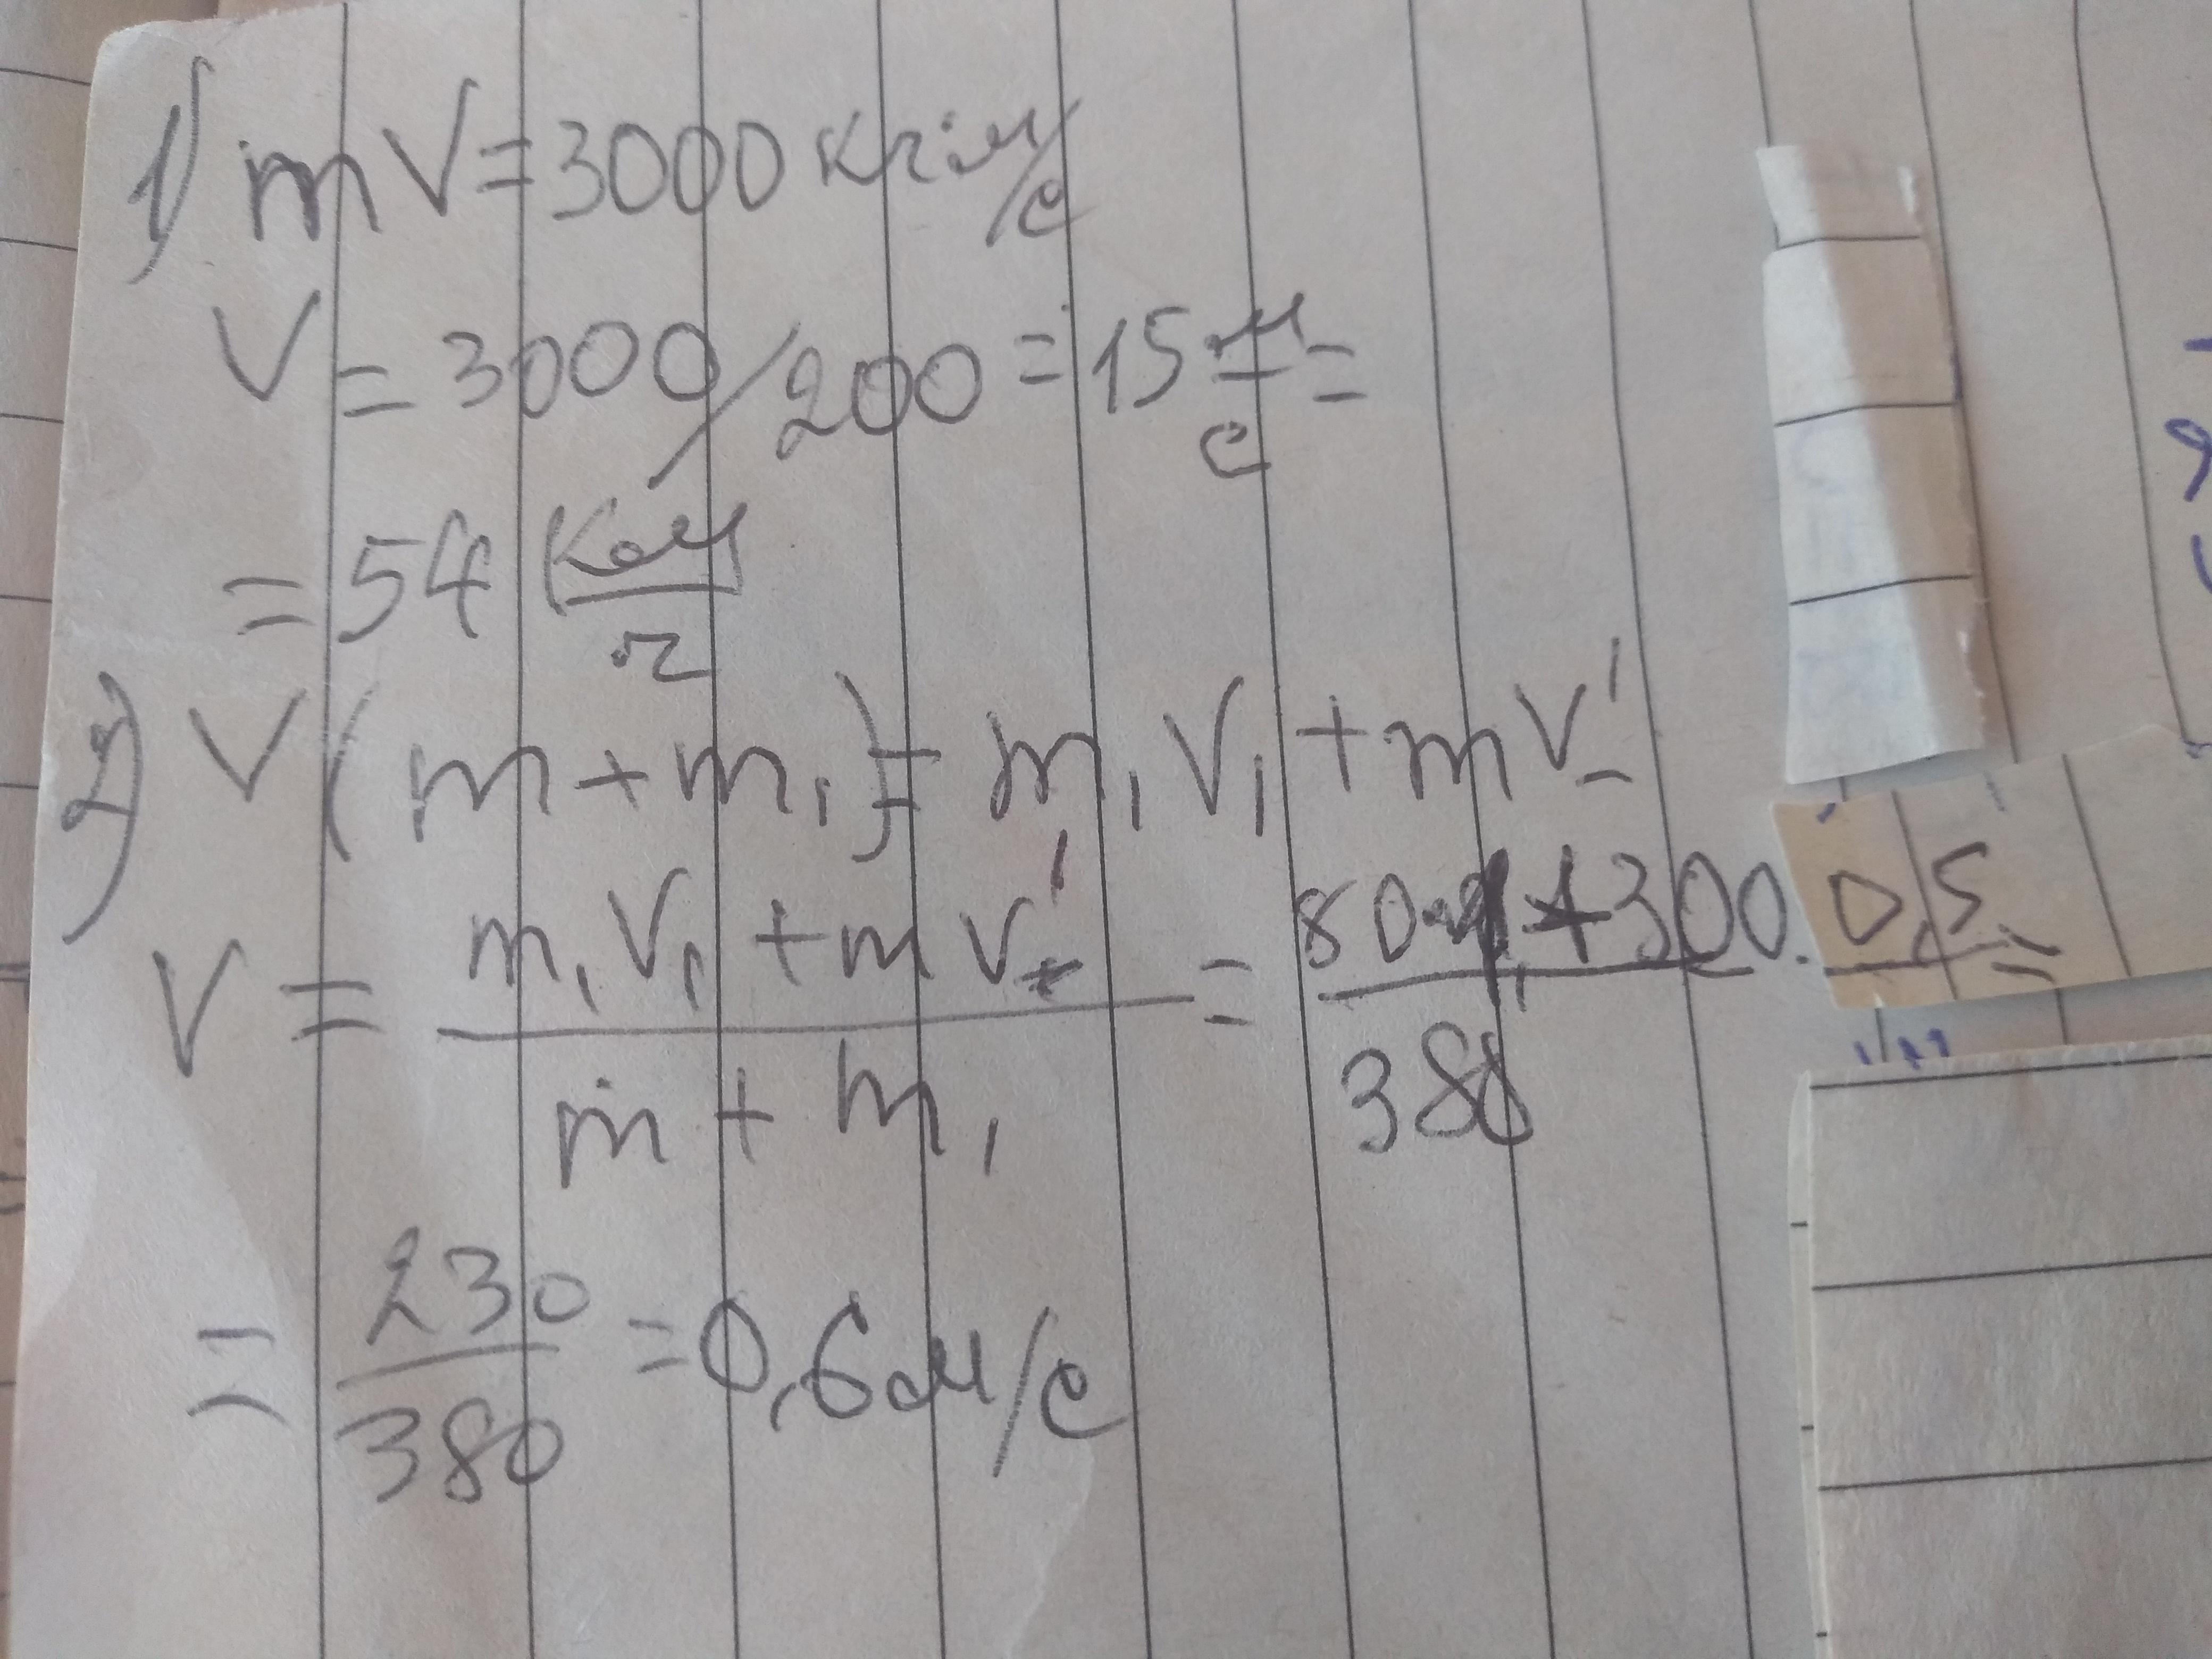 1) mV=3000 кг·м/с
V=3000/200=15 м/с=
=54 км/г
2) V(m+m₁)=m₁V₁+mV'
V= (m₁V₁+mV')/(m+m₁) = (80·1+300·0,5)/380 =
= 230/380 =0,6 м/с